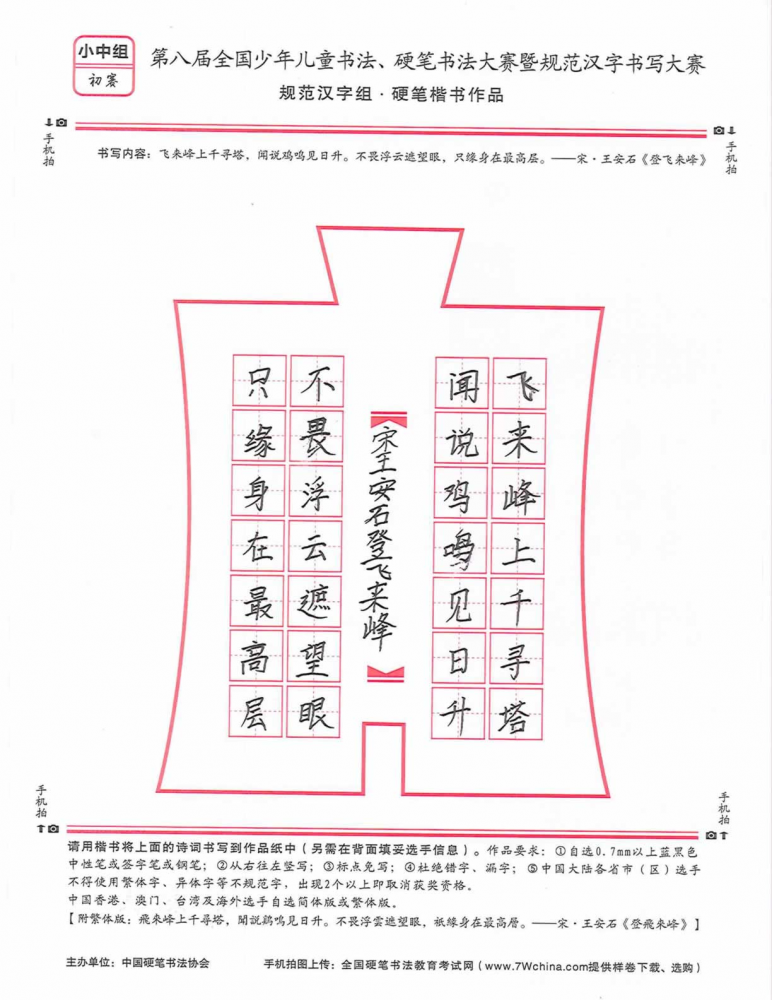 小中组
初赛
第八届全国少年儿童书法、硬笔书法大赛暨规范汉字书写大赛
规范汉字组·硬笔楷书作品
手机拍
手机拍
书写内容：飞来峰上千寻塔，闻说鸡鸣见日升。不畏浮云遮望眼，只缘身在最高层。——宋·王安石《登飞来峰》
飞来峰上千寻塔
闻说鸡鸣见日升
宋王安石登飞来峰
不畏浮云遮望眼
只缘身在最高层
手机拍
手机拍
请用楷书将上面的诗词书写到作品纸中（另需在背面填妥选手信息）。作品要求：①自选0.7mm以上蓝黑色
中性笔或签字笔或钢笔；②从右往左竖写；③标点免写；④杜绝错字、漏字；⑤中国大陆各省市（区）选手
不得使用繁体字、异体字等不规范字，出现2个以上即取消获奖资格。
中国香港、澳门、台湾及海外选手自选简体版或繁体版。
【附繁体版：飛來峰上千尋塔，聞說鷄鳴見日升。不畏浮雲遮望眼，衹緣身在最高層。——宋·王安石《登飛來峰》】
主办单位：中国硬笔书法协会
手机拍图上传：全国硬笔书法教育考试网（www.7Wchina.com提供样卷下载、选购）